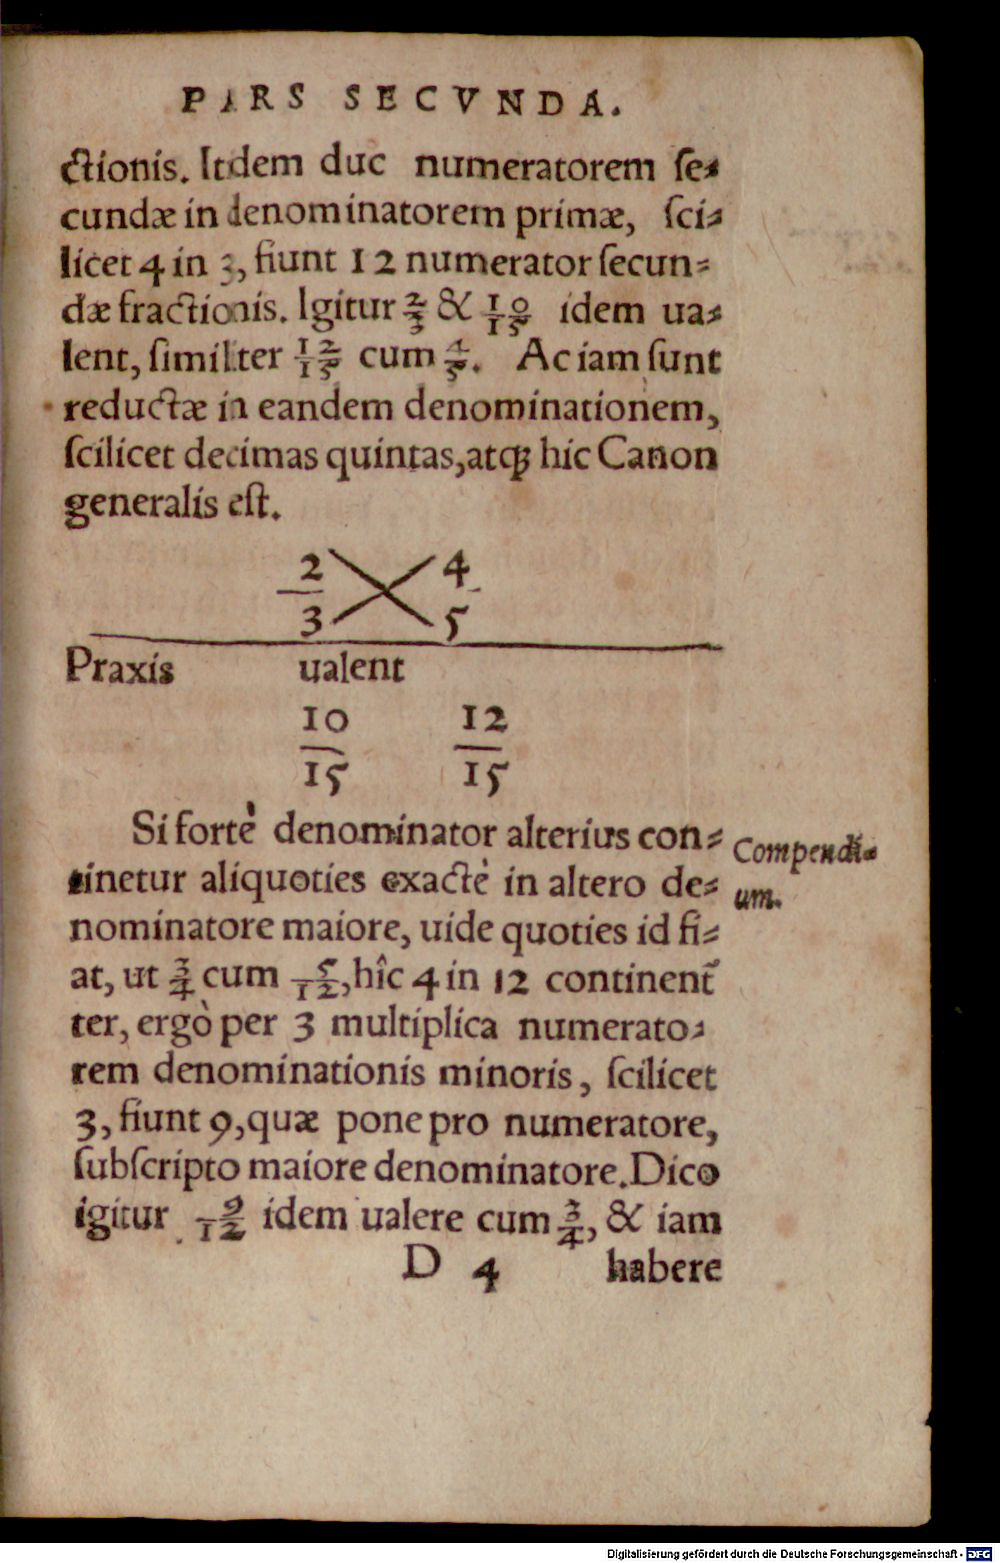 PARS SECVNDA.
ctionis. Itdem duc numeratorem ſe⸗
cundæ in denominatorem primæ, ſci⸗
licet 4 in 3, fiunt 12 numerator ſecun⸗
dæ fractionis. Igitur 2/3 & 10/15 idem ua⸗
lent, ſimiliter 12/15 cum 4/5. Ac iam ſunt
reductæ in eandem denominationem,
ſcilicet decimas quintas, atqꝫ hic Canon
generalis eſt.
2 4
3 5
Praxis ualent
10 12
15 15
Si fortè denominator alterius con⸗
tinetur aliquoties exactè in altero de⸗
nominatore maiore, uide quoties id fi⸗
at, ut 3/4 cum 5/12, hîc 4 in 12 continent᷑
ter, ergò per 3 multiplica numerato⸗
rem denominationis minoris, ſcilicet
3, fiunt 9, quæ pone pro numeratore,
ſubſcripto maiore denominatore. Dico
igitur 9/12 idem ualere cum 3/4, & iam
D 4 habere
Compendi⸗
um.
Digitalisierung gefördert durch die Deutsche Forschungsgemeinschaft - DFG